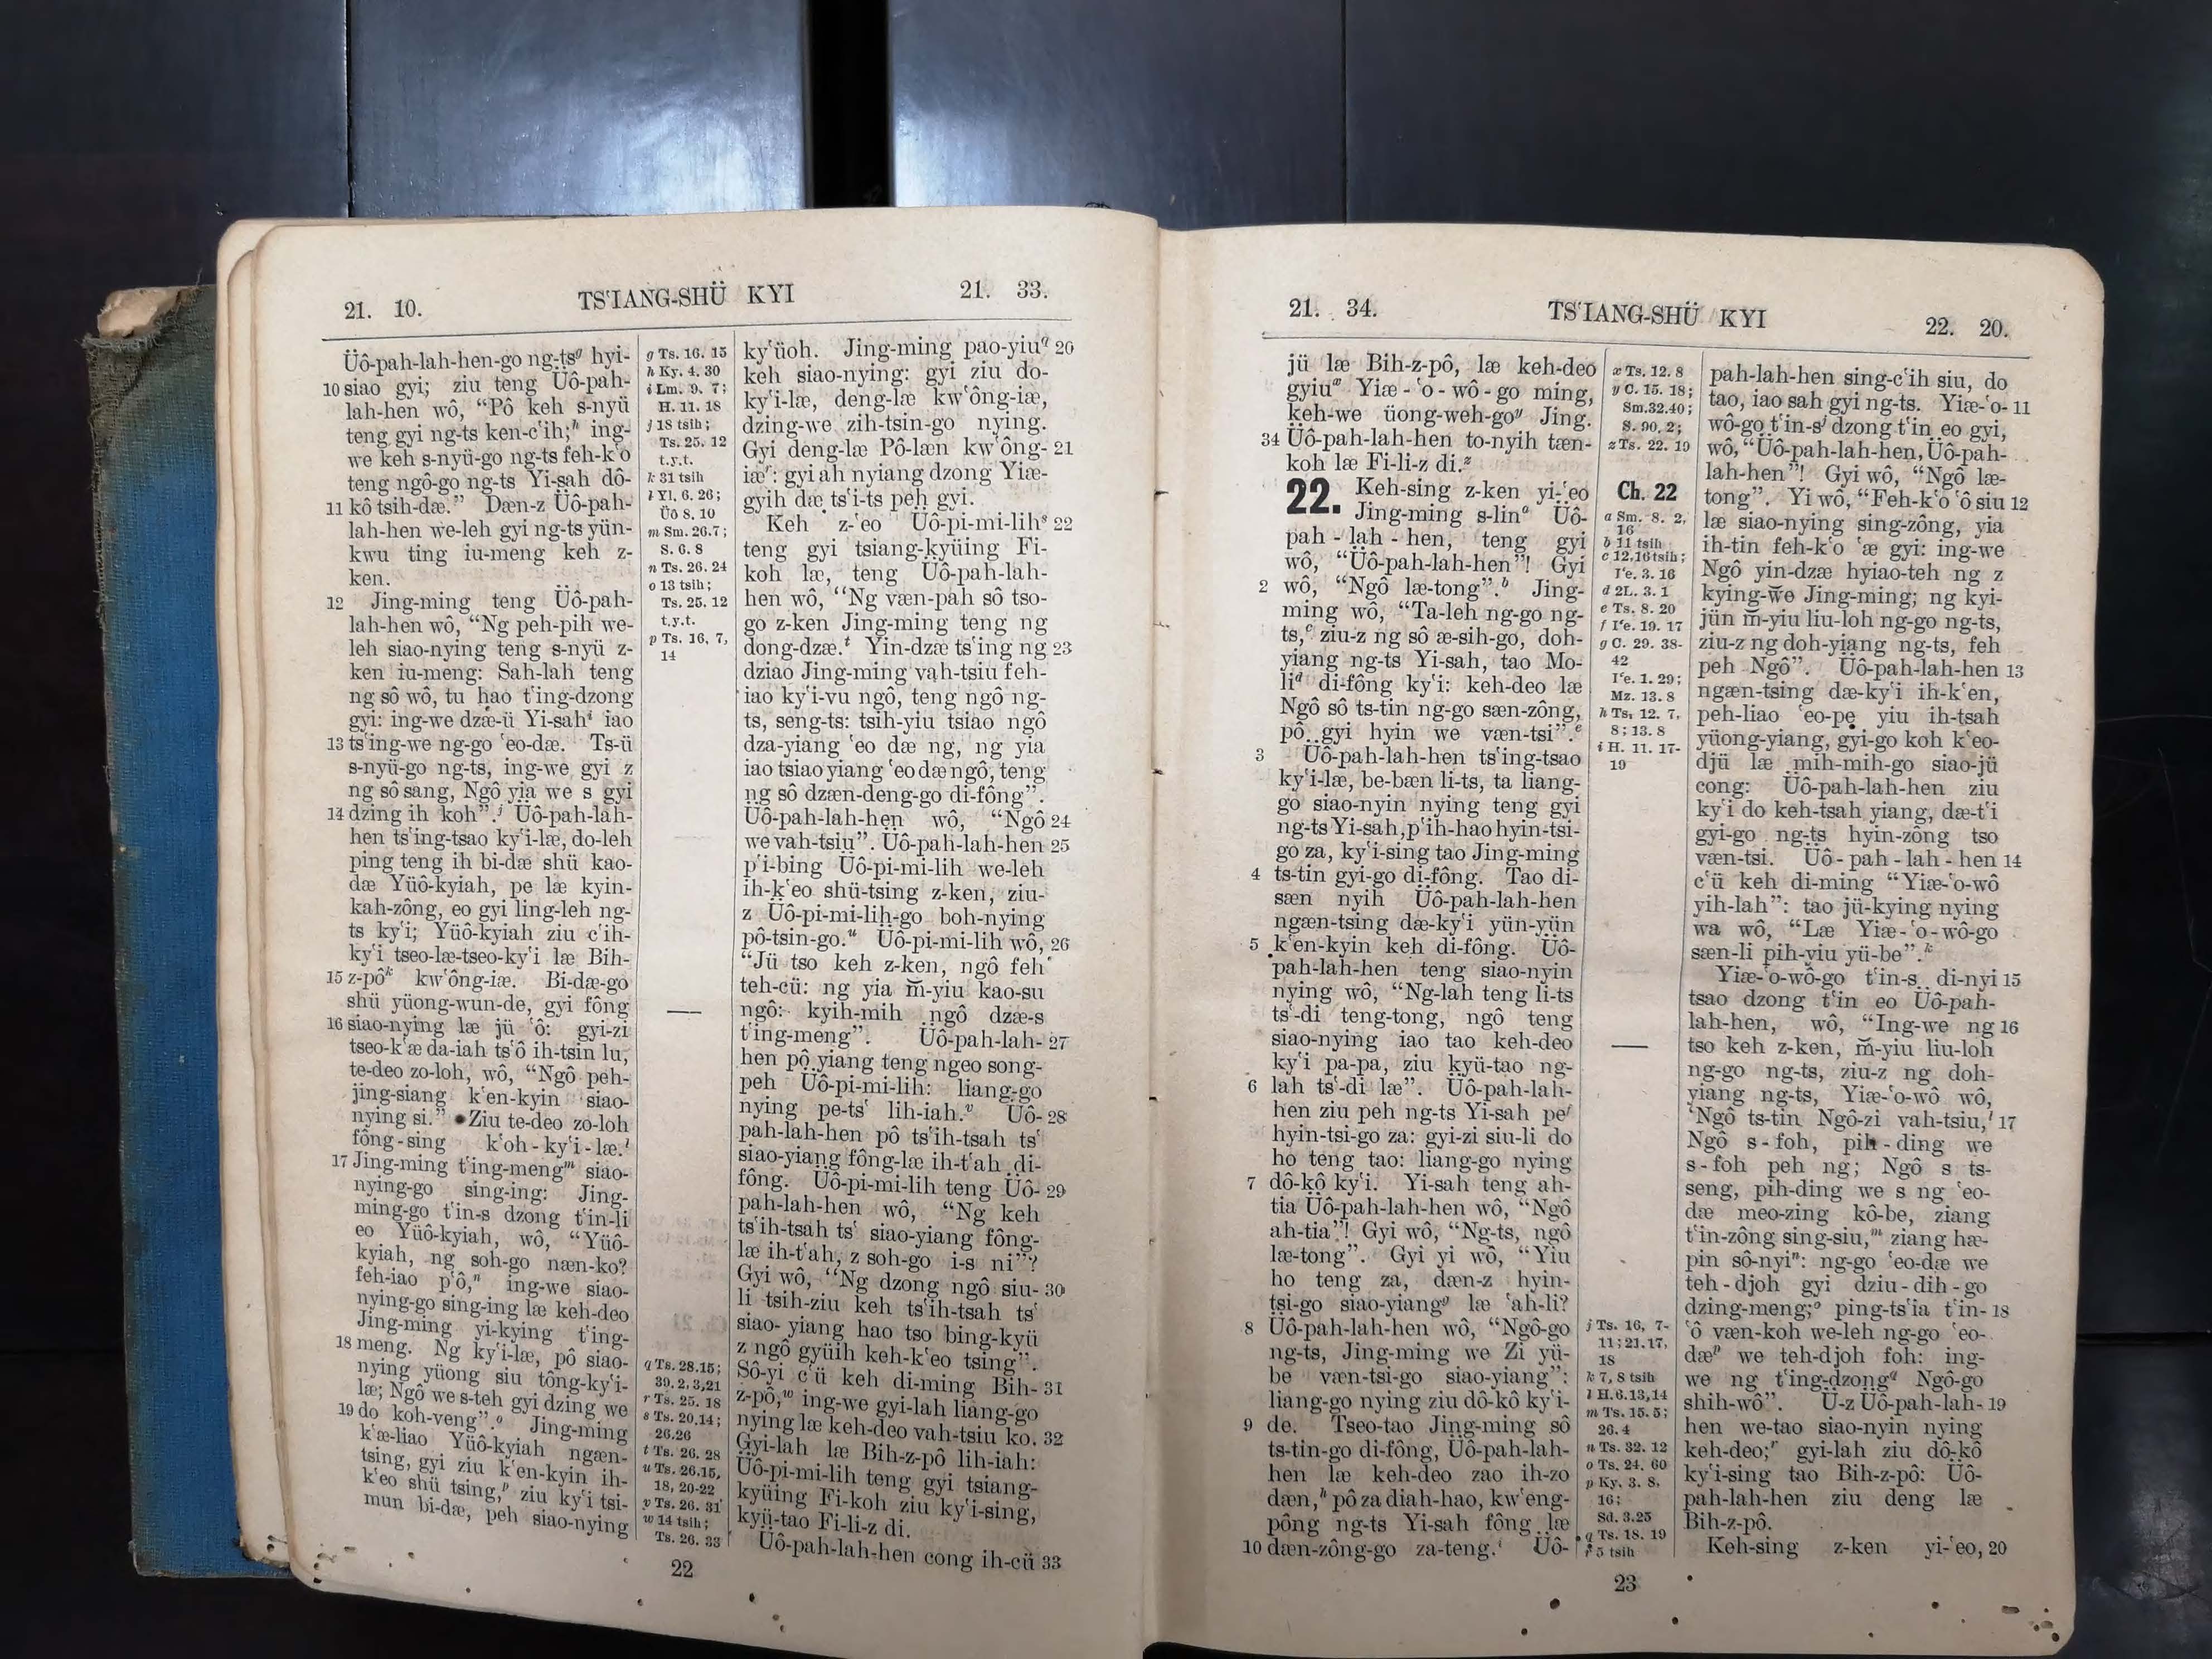 21. 10.
TSʽIANG-SHÜ KYI
21. 33.
Üô-pah-lah-hen-go ng-tsᵍ hyi-
10 siao gyi; ziu teng Üô-pah-
lah-hen wô, “Pô keh s-nyü
teng gyi ng-ts ken-cʽih;ʰ ing-
we keh s-nyü-go ng-ts feh-kʽo
teng ngô-go ng-ts Yi-sah dô-
11 kô tsih-dæ.” Dæn-z Üô-pah-
lah-hen we-leh gyi ng-ts yün-
kwu ting iu-meng keh z-
ken.
12 Jing-ming teng Üô-pah-
lah-hen wô, “Ng peh-pih we-
leh siao-nying teng s-nyü z-
ken iu-meng: Sah-lah teng
ng sô wô, tu hao tʽing-dzong
gyi: ing-we dzæ-ü Yi-sahⁱ iao
13 tsʽing-we ng-go ʽeo-dæ. Ts-ü
s-nyü-go ng-ts, ing-we gyi z
ng sô sang, Ngô yia we s gyi
14 dzing ih koh”.ʲ Üô-pah-lah-
hen tsʽing-tsao kyʽi-læ, do-leh
ping teng ih bi-dæ shü kao-
dæ Yüô-kyiah, pe læ kyin-
kah-zông, eo gyi ling-leh ng-
ts kyʽi; Yüô-kyiah ziu cʽih-
kyʽi tseo-læ-tseo-kyʽi læ Bih-
15 z-pôᵏ kwʽông-iæ. Bi-dæ-go
shü yüong-wun-de, gyi fông
16 siao-nying læ jü ʽô: gyi-zi
tseo-kʽæ da-iah tsʽô ih-tsin lu,
te-deo zo-loh, wô, “Ngô peh-
jing-siang kʽen-kyin siao-
nying si.” Ziu te-deo zo-loh
fông-sing kʽoh-kyʽi-læ.ˡ
17 Jing-ming tʽing-mengᵐ siao-
nying-go sing-ing: Jing-
ming-go tʽin-s dzong tʽin-li
eo Yüô-kyiah, wô, “Yüô-
kyiah, ng soh-go næn-ko?
feh-iao pʽô,ⁿ ing-we siao-
nying-go sing-ing læ keh-deo
Jing-ming yi-kying tʽing-
18 meng. Ng kyʽi-læ, pô siao-
nying yüong siu tông-kyʽi-
læ; Ngô we s-teh gyi dzing we
19 do koh-veng”.ᵒ Jing-ming
kʽæ-liao Yüô-kyiah ngæn-
tsing, gyi ziu kʽen-kyin ih-
kʽeo shü tsing,ᵖ ziu kyʽi tsi-
mun bi-dæ, peh siao-nying
g Ts. 16. 15
h Ky. 4. 30
i Lm. 9. 7;
H. 11. 18
j 18 tsih;
Ts. 25. 12
t.y.t.
k 31 tsih
l Yl. 6. 26;
Üô 8. 10
m Sm. 26.7;
S. 6. 8
n Ts. 26. 24
o 13 tsih;
Ts. 25. 12
t.y.t.
p Ts. 16, 7,
14
q Ts. 28.15;
39. 2, 3,21
r Ts. 25. 18
s Ts. 20.14;
26.26
t Ts. 26. 28
u Ts. 26.15,
18, 20-22
v Ts. 26. 31
w 14 tsih;
Ts. 26. 33
kyʽüoh. Jing-ming pao-yiu𐞥 20
keh siao-nying: gyi ziu do-
kyʽi-læ, deng-læ kwʽông-iæ,
dzing-we zih-tsin-go nying.
Gyi deng-læ Pô-læn kwʽông- 21
iæʳ: gyi ah nyiang dzong Yiæ-
gyih dæ tsʽi-ts peh gyi.
Keh z-ʽeo Üô-pi-mi-lihˢ 22
teng gyi tsiang-kyüing Fi-
koh læ, teng Üô-pah-lah-
hen wô, “Ng væn-pah sô tso-
go z-ken Jing-ming teng ng
dong-dzæ.ᵗ Yin-dzæ tsʽing ng 23
dziao Jing-ming vah-tsiu feh-
iao kyʽi-vu ngô, teng ngô ng-
ts, seng-ts: tsih-yiu tsiao ngô
dza-yiang ʽeo dæ ng, ng yia
iao tsiao yiang ʽeo dæ ngô, teng
ng sô dzæn-deng-go di-fông”.
Üô-pah-lah-hen wô, “Ngô 24
we vah-tsiu”. Üô-pah-lah-hen 25
pʽi-bing Üô-pi-mi-lih we-leh
ih-kʽeo shü-tsing z-ken, ziu-
z Üô-pi-mi-lih-go boh-nying
pô-tsin-go.ᵘ Üô-pi-mi-lih wô, 26
“Jü tso keh z-ken, ngô feh
teh-cü: ng yia m̆-yiu kao-su
ngô: kyih-mih ngô dzæ-s
tʽing-meng”. Üô-pah-lah- 27
hen pô yiang teng ngeo song-
peh Üô-pi-mi-lih: liang-go
nying pe-tsʽ lih-iah.ᵛ Üô- 28
pah-lah-hen pô tsʽih-tsah tsʽ
siao-yiang fông-læ ih-tʽah di-
fông. Üô-pi-mi-lih teng Üô- 29
pah-lah-hen wô, “Ng keh
tsʽih-tsah tsʽ siao-yiang fông-
læ ih-tʽah, z soh-go i-s ni”?
Gyi wô, “Ng dzong ngô siu- 30
li tsih-ziu keh tsʽih-tsah tsʽ
siao-yiang hao tso bing-kyü
z ngô gyüih keh-kʽeo tsing”.
Sô-yi cʽü keh di-ming Bih- 31
z-pô,ʷ ing-we gyi-lah liang-go
nying læ keh-deo vah-tsiu ko. 32
Gyi-lah læ Bih-z-pô lih-iah:
Üô-pi-mi-lih teng gyi tsiang-
kyüing Fi-koh ziu kyʽi-sing,
kyü-tao Fi-li-z di.
Üô-pah-lah-hen cong ih-cü 33
22
21. 34.
TSʽIANG-SHÜ KYI
22. 20.
jü læ Bih-z-pô, læ keh-deo
gyiuˣ Yiæ-ʽo-wô-go ming,
keh-we üong-weh-goʸ Jing.
34 Üô-pah-lah-hen to-nyih tæn-
koh læ Fi-li-z di.ᶻ
22. Keh-sing z-ken yi-ʽeo
Jing-ming s-linᵃ Üô-
pah-lah-hen, teng gyi
wô, “Üô-pah-lah-hen”! Gyi
2 wô, “Ngô læ-tong”.ᵇ Jing-
ming wô, “Ta-leh ng-go ng-
ts,ᶜ ziu-z ng sô æ-sih-go, doh-
yiang ng-ts Yi-sah, tao Mo-
liᵈ di-fông kyʽi: keh-deo læ
Ngô sô ts-tin ng-go sæn-zông,
pô gyi hyin we væn-tsi”.ᵉ
3 Üô-pah-lah-hen tsʽing-tsao
kyʽi-læ, be-bæn li-ts, ta liang-
go siao-nyin nying teng gyi
ng-ts Yi-sah, pʽih-hao hyin-tsi-
go za, kyʽi-sing tao Jing-ming
4 ts-tin gyi-go di-fông. Tao di-
sæn nyih Üô-pah-lah-hen
ngæn-tsing dæ-kyʽi yün-yün
5 kʽen-kyin keh di-fông. Üô-
pah-lah-hen teng siao-nyin
nying wô, “Ng-lah teng li-ts
tsʽ-di teng-tong, ngô teng
siao-nying iao tao keh-deo
kyʽi pa-pa, ziu kyü-tao ng-
6 lah tsʽ-di læ”. Üô-pah-lah-
hen ziu peh ng-ts Yi-sah peᶠ
hyin-tsi-go za: gyi-zi siu-li do
ho teng tao: liang-go nying
7 dô-kô kyʽi. Yi-sah teng ah-
tia Üô-pah-lah-hen wô, “Ngô
ah-tia”! Gyi wô, “Ng-ts, ngô
læ-tong”. Gyi yi wô, “Yiu
ho teng za, dæn-z hyin-
tsi-go siao-yiangᵍ læ ʽah-li?
8 Üô-pah-lah-hen wô, “Ngô-go
ng-ts, Jing-ming we Zi yü-
be væn-tsi-go siao-yiang”:
liang-go nying ziu dô-kô kyʽi-
9 de. Tseo-tao Jing-ming sô
ts-tin-go di-fông, Üô-pah-lah-
hen læ keh-deo zao ih-zo
dæn,ʰ pô za diah-hao, kwʽeng-
pông ng-ts Yi-sah fông læ
10 dæn-zông-go za-teng.ⁱ Üô-
x Ts. 12. 8
y C. 15. 18;
Sm.32.40;
S. 90. 2;
z Ts. 22. 19
Ch. 22
a Sm. 8. 2,
16
b 11 tsih
c 12,16 tsih;
Iʽe. 3. 16
d 2L. 3. 1
e Ts. 8. 20
f Iʽe. 19. 17
g C. 29. 38-
42
Iʽe. 1. 29;
Mz. 13. 8
h Ts. 12. 7,
8; 13. 8
i H. 11. 17-
19
j Ts. 16, 7-
11; 21.17,
18
k 7, 8 tsih
l H.6.13,14
m Ts. 15. 5;
26. 4
n Ts. 32. 12
o Ts. 24. 60
p Ky. 3. 8,
16;
Sd. 3.25
q Ts. 18. 19
r 5 tsih
pah-lah-hen sing-cʽih siu, do
tao, iao sah gyi ng-ts. Yiæ-ʽo- 11
wô-go tʽin-sʲ dzong tʽin eo gyi,
wô, “Üô-pah-lah-hen, Üô-pah-
lah-hen”! Gyi wô, “Ngô læ-
tong”. Yi wô, “Feh-kʽo ʽô siu 12
læ siao-nying sing-zông, yia
ih-tin feh-kʽo ʽæ gyi: ing-we
Ngô yin-dzæ hyiao-teh ng z
kying-we Jing-ming; ng kyi-
jün m̆-yiu liu-loh ng-go ng-ts,
ziu-z ng doh-yiang ng-ts, feh
peh Ngô”. Üô-pah-lah-hen 13
ngæn-tsing dæ-kyʽi ih-kʽen,
peh-liao ʽeo-pe yiu ih-tsah
yüong-yiang, gyi-go koh kʽeo-
djü læ mih-mih-go siao-jü
cong: Üô-pah-lah-hen ziu
kyʽi do keh-tsah yiang, dæ-tʽi
gyi-go ng-ts hyin-zông tso
væn-tsi. Üô-pah-lah-hen 14
cʽü keh di-ming “Yiæ-ʽo-wô
yih-lah”: tao jü-kying nying
wa wô, “Læ Yiæ-ʽo-wô-go
sæn-li pih-yiu yü-be”.ᵏ
Yiæ-ʽo-wô-go tʽin-s di-nyi 15
tsao dzong tʽin eo Üô-pah-
lah-hen, wô, “Ing-we ng 16
tso keh z-ken, m̆-yiu liu-loh
ng-go ng-ts, ziu-z ng doh-
yiang ng-ts, Yiæ-ʽo-wô wô,
‘Ngô ts-tin Ngô-zi vah-tsiu,ˡ 17
Ngô s-foh, pih-ding we
s-foh peh ng; Ngô s ts-
seng, pih-ding we s ng ʽeo-
dæ meo-zing kô-be, ziang
tʽin-zông sing-siu,ᵐ ziang hæ-
pin sô-nyiⁿ: ng-go ʽeo-dæ we
teh-djoh gyi dziu-dih-go
dzing-meng;ᵒ ping-tsʽia tʽin- 18
ʽô væn-koh we-leh ng-go ʽeo-
dæᵖ we teh-djoh foh: ing-
we ng tʽing-dzong𐞥 Ngô-go
shih-wô”. Ü-z Üô-pah-lah- 19
hen we-tao siao-nyin nying
keh-deo;ʳ gyi-lah ziu dô-kô
kyʽi-sing tao Bih-z-pô: Üô-
pah-lah-hen ziu deng læ
Bih-z-pô.
Keh-sing z-ken yi-ʽeo, 20
23